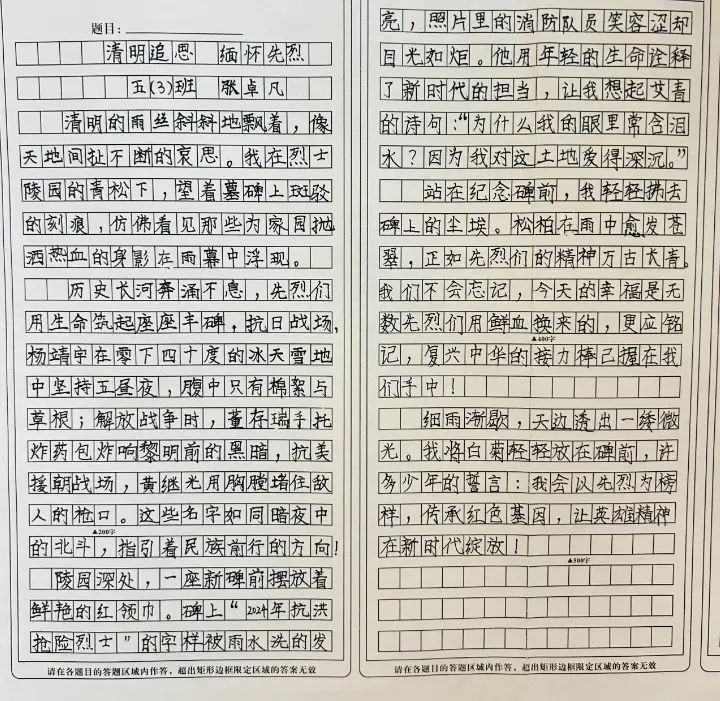 题目：
清明追思 缅怀先烈
五(3)班 张卓凡
清明的雨丝斜斜地飘着，像
天地间扯不断的哀思。我在烈士
陵园的青松下，望着墓碑上斑驳
的刻痕，仿佛看见那些为家园抛
洒热血的身影在雨幕中浮现。
历史长河奔涌不息，先烈们
用生命筑起座座丰碑，抗日战场，
杨靖宇在零下四十度的冰天雪地
中坚持五昼夜，腹中只有棉絮与
草根；解放战争时，董存瑞手托
炸药包炸响黎明前的黑暗，抗美
援朝战场，黄继光用胸膛堵住敌
人的枪口。这些名字如同暗夜中
▲200字
的北斗，指引着民族前行的方向！
陵园深处，一座新碑前摆放着
鲜艳的红领巾。碑上“2024年抗洪
抢险烈士”的字样被雨水洗的发
请在各题目的答题区域内作答，超出矩形边框限定区域的答案无效
亮，照片里的消防队员笑容涩却
目光如炬。他用年轻的生命诠释
了新时代的担当，让我想起艾青
的诗句：“为什么我的眼里常含泪
水？因为我对这土地爱得深沉。”
站在纪念碑前，我轻轻拂去
碑上的尘埃。松柏在雨中愈发苍
翠，正如先烈们的精神万古长青。
我们不会忘记，今天的幸福是无
数先烈们用鲜血换来的，更应铭
▲400字
记，复兴中华的接力棒已握在我
们手中！
细雨渐歇，天边透出一缕微
光。我将白菊轻轻放在碑前，许
多少年的誓言：我会以先烈为榜
样，传承红色基因，让英雄精神
在新时代绽放！
▲500字
请在各题目的答题区域内作答，超出矩形边框限定区域的答案无效